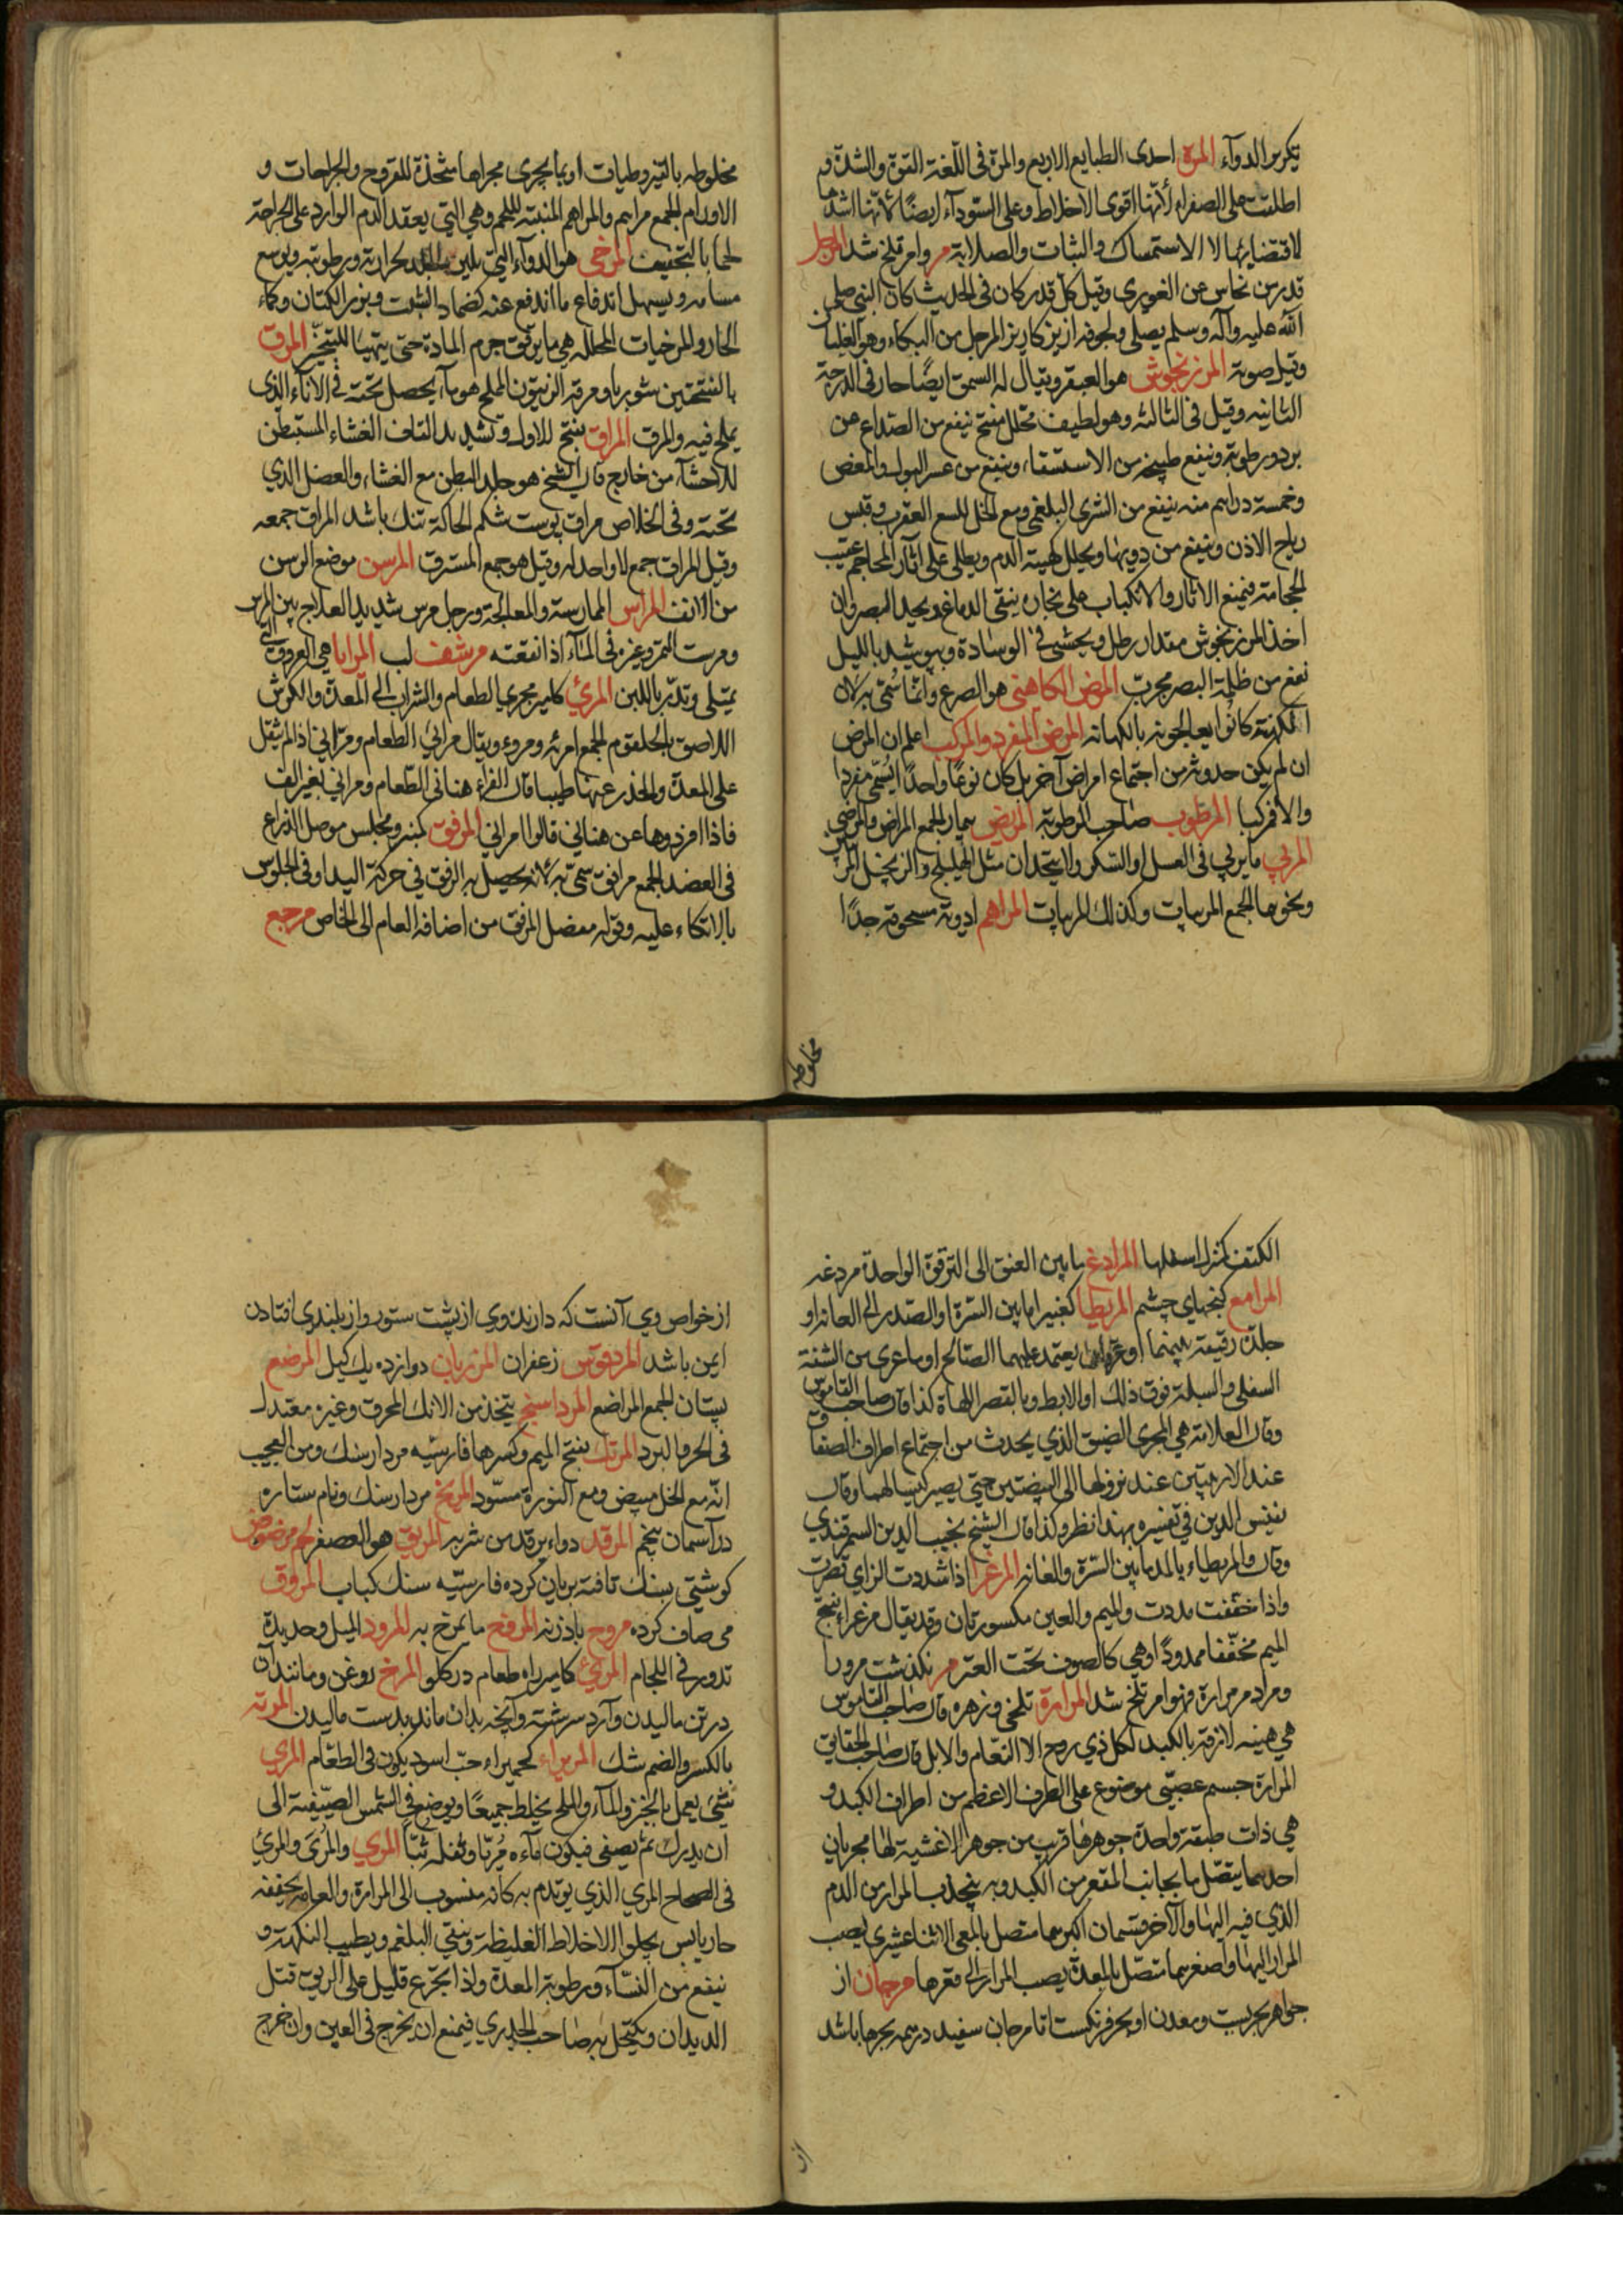 يكرس الدوآء المرة احدى الطبايع الاربع والمرة فى اللّغة القوة والشدة و
اطلقت على الصفراء لأنّها اقوى الاخلاط وعلى السّودآء ايضًا لانّها اشدها
لاقتضائها الاستمساك والثبات والصلابة مر وامر تلخ شد المرجل
قدر من نحاس عن الغورى وقيل كل قدر كان فى الحديث كان النبى صلى
الله عليه وآله وسلم يصلى ولجوفه ازيز كازيز المرجل من البكاء وهو الغليان
وقيل صوته المرزنجوش هو العبقر ويقال له السمق ايضًا حار فى الدرجة
الثانيه وقيل فى الثالثه وهو لطيف محلل مفتح ينفع من الصداع عن
برد ورطوبة وينفع طبيخه من الاستسقاء وينفع من عسر البول والمغص
وخمسة دراهم منه ينفع من الشرى البلغمى ومع الخل للسع العقرب و
رياح الاذن وينفع من دويها ويحلل كهبة الدم ويطلى على اثار المحاجم عقيب
الحجامة فيمنع الاثار والانكباب على بخاره ينقى الدماغ ويحد البصر وان
اخذ المرزنجوش مقدار رطل ويحشى فى الوسادة ويوشد بالليل
نفع من ظلمة البصر مجرب المرض الكاهنى هو الصرع وانما سُمّى به لان
الكهنة كانوا يعالجونه بالكهانه المرض المفرد والمركب اعلم ان المرض
ان لم يكن حدوثه من اجتماع امراض آخر بل كان نوعًا واحدًا يُسمّى مفردا
والا فمركبا المرطوب صاحب الرطوبة المريض بيمار الجمع المراض والمرضى
المربى ما يربى فى العسل او السّكر ولا يتحدان مثل الهليلج والزنجبيل المربين
ونحوها الجمع المربيات وكذلك المربيات المراهم ادوية مسحوقة جدًا
مخلوطه
مخلوطه بالقيروطيات او بما يجرى مجراها متخذة للقروح والجراحات و
الاورام الجمع مراهم والمراهم المنبته للحم وهى التى يعقد الدم الوارد على الجراحة
لحما بالتجفيف المرخى هو الدوآء الذى يلين الجلد بحرارته ورطوبته ويوسع
مسامه ويسهل اندفاع ما اندفع عنه كضماد الشبت وبزر الكتان وكماء
الحار والمرخيات المحلله هى ما يرقق جرم المادة حتى يتهيا للتبخّر المرق
بالفتحتين شوربا ومرقة الزيتون المملح هو مآء يحصل تحته فى الاناء الذى
يملح فيه والمرق المراق بفتح الاول وتشديد القاف الغشاء المستبطن
للاحشآء من خارج قال الشيخ هو جلد البطن مع الغشاء والعضل الذي
تحته وفى الخلاص مراق پوست شكم الحاكة تنك باشد المراق جمعه
وقيل المراق جمع لا واحد له وقيل هو جمع المسترق المرسن موضع الرسن
من الانف المراس الممارسة والمعالجة ورجل مرس شديد العلاج بين المرس
ومرست التمر وغيره فى المآء اذا نقعته مرشف لب المرايا هى العروق التى
يمتلى وتدرّ باللبن المرئ كامير مجرى الطعام والشراب الى المعدة والكرش
اللاصق بالحلقوم الجمع امرئة ومروء ويقال مرانى الطعام ومرانى اذا لم يثقل
على المعدة وانحدر عنها طيبا قال الفراء هنانى الطعام ومرانى بغير الف
فاذا افردوها عن هنانى قالوا امرانى المرفق كمنبر ومجلس موصل الذراع
فى العضد الجمع مرافق سمّى به لانه يحصل به الرفق فى حركة اليد او فى الجلوس
بالاتكاء عليه وقوله مفصل المرفق من اضافة العام الى الخاص مرجع
الكتف كمنزل اسفلها المرادغ ما بين العنق الى الترقوة الواحدة مردغه
المرامع كنجهاى چشم المريطا كغبيرا ما بين السرة او الصدر الى العانه او
جلدة رقيقة بينهما او عرقان يعتمد عليهما الصائح او ما عرى من الشفة
السفلى والسبلة فوق ذلك او الابط وبالقصر اللهاة كذا قال صاحب القاموس
وقال العلامة هى المجرى الضيق الذي يحدث من اجتماع اطراف الصفاق
عند الاربيتين عند نزولها الى البيضتين حتى يصير كيسا لهما وقال
نفيس الدين فى تفسيره بهذا نظر ولذا قال الشيخ نجيب الدين السمرقندى
وقال والمريطاء بالمد ما بين السّرة والعانه المرغزا اذا شددت الزاى قصرت
واذا خففت مددت والميم والعين مكسورتان وقد يقال مرغزاء بفتح
الميم مخففا ممدودًا وهى كالصوف تحت العنز مر بكذشت مرورا
ومرادم مرارة فهو امر تلخ شد المرارة تلخى وزهره قال صاحب القاموس
هى هينه لازقة بالكبد لكل ذى روح الا النعام والابل قال صاحب الحقايق
المرارة جسم عصبى موضوع على الطرف الاعظم من اطراف الكبد و
هى ذات طبقة واحدة جوهرها قريب من جوهر الاغشية لها مجريان
احدهما يتصّل ما بجانب المقعر من الكبد وبه ينجذب المرار من الدم
الذي فيه اليها والآخر قسمان اكبرهما متصل بالمعى الاثنا عشرى يصب
المرار اليها واصغرهما متصّل بالمعدة يصب المرار الى قعرها مرجان از
جواهر بحريست ومعدن او بحر فرنكست تا مرجان سفيد در همه بحرها باشد
از
از خواص وي آنست كه دارنده وي از پشت ستور واز بلندى افتادن
ايمن باشد المردقوش زعفران المرزبان دوازده يك كيل المرضع
پستان الجمع المراضع المرداسنج يتخذ من الانك المحرق وغيره معتدل
فى الحر والبرد المرتك بفتح الميم وكسرها فارسيه مردارسنك ومن العجيب
انّه مع الخل مبيض ومع النورة مسّود المريخ مردارسنك ونام ستاره
در آسمان پنجم المرقد دواء يرقد من شربه المريق هو العصفر لحم مرضوض
كوشتى بسنك تافته بريان كرده فارسيّه سنك كباب المروق
مى صاف كرده مروح بادزنه المروخ ما تمرخ به المرود الميل وحديدة
تدور فى اللجام المرئ كامير راه طعام در كلو المرخ روغن ومانند آن
در تن ماليدن وآرد سرشته وآنچه بدان ماند بدست ماليدن المرته
بالكسر والضم شك المريراء كحميراء حبّ اسود يكون فى الطعام المرى
شئ يعمل بالخبز والمآء والملح يخلط جميعًا ويوضع فى الشمس الصيّفية الى
ان يدرك ثم يصفى فيكون مآءه مُريّا وثفله بُنّا المري والمُرَى والمرئ
فى الصحاح المرى الذى يوتدم به كانه منسوب الى المرارة والعامه يخففه
حار يابس يجلو الاخلاط الغليظة وينقى البلغم ويطيب النكهة و
ينفع من النسّاء ورطوبة المعدة واذا تجرّع قليل على الريق قتل
الديدان ويكتحل به صاحب الجدري فيمنع ان يخرج فى العين وان خرج